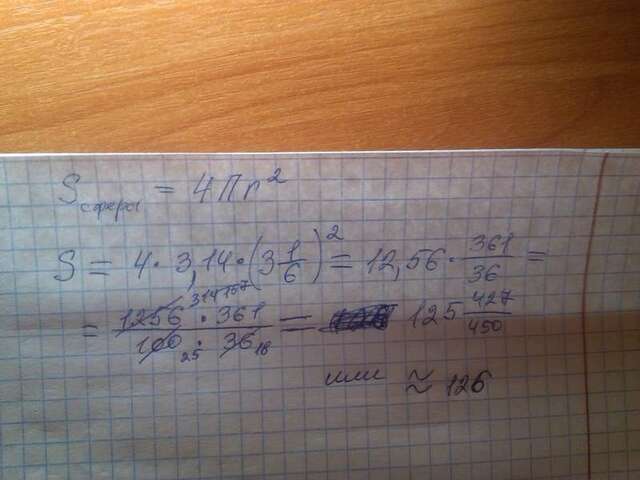 S сферы = 4Пr²
S = 4 · 3,14 · (3 1/6)² = 12,56 · 361/36 =
= 1256 314 157 · 361 / 100 25 · 36 18 = 125 427/450
или ≈ 126